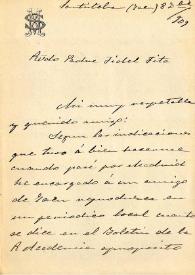 Santisteban (Jaen) 8 Dbre
909
Rvdo Padre Fidel Fita
Mi muy respetable
y querido amigo:
Segun las indicaciones
que tuvo á bien hacerme
cuando pasé por Madrid
he encargado á un amigo
de Jaen reproduzca en
un periodico local cuanto
se dice en el Boletin de la
R. Academia apropósito